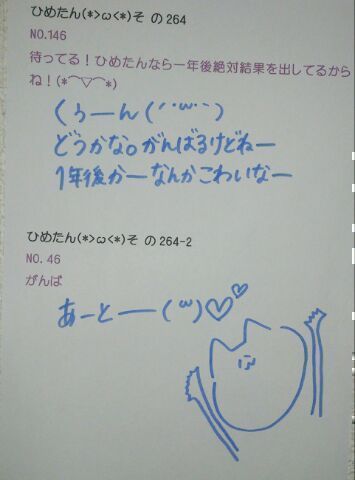 ひめたん(*>ω<*)そ の264
NO.146
待ってる！ひめたんなら一年後絶対結果を出してるから
ね！(*⌒▽⌒*)
くぅーん(´･ω･`)
どうかな。がんばるけどねー
1年後かーなんかこわいなー
ひめたん(*>ω<*)そ の264-2
NO. 46
がんば
あーとー(ω)♡♡